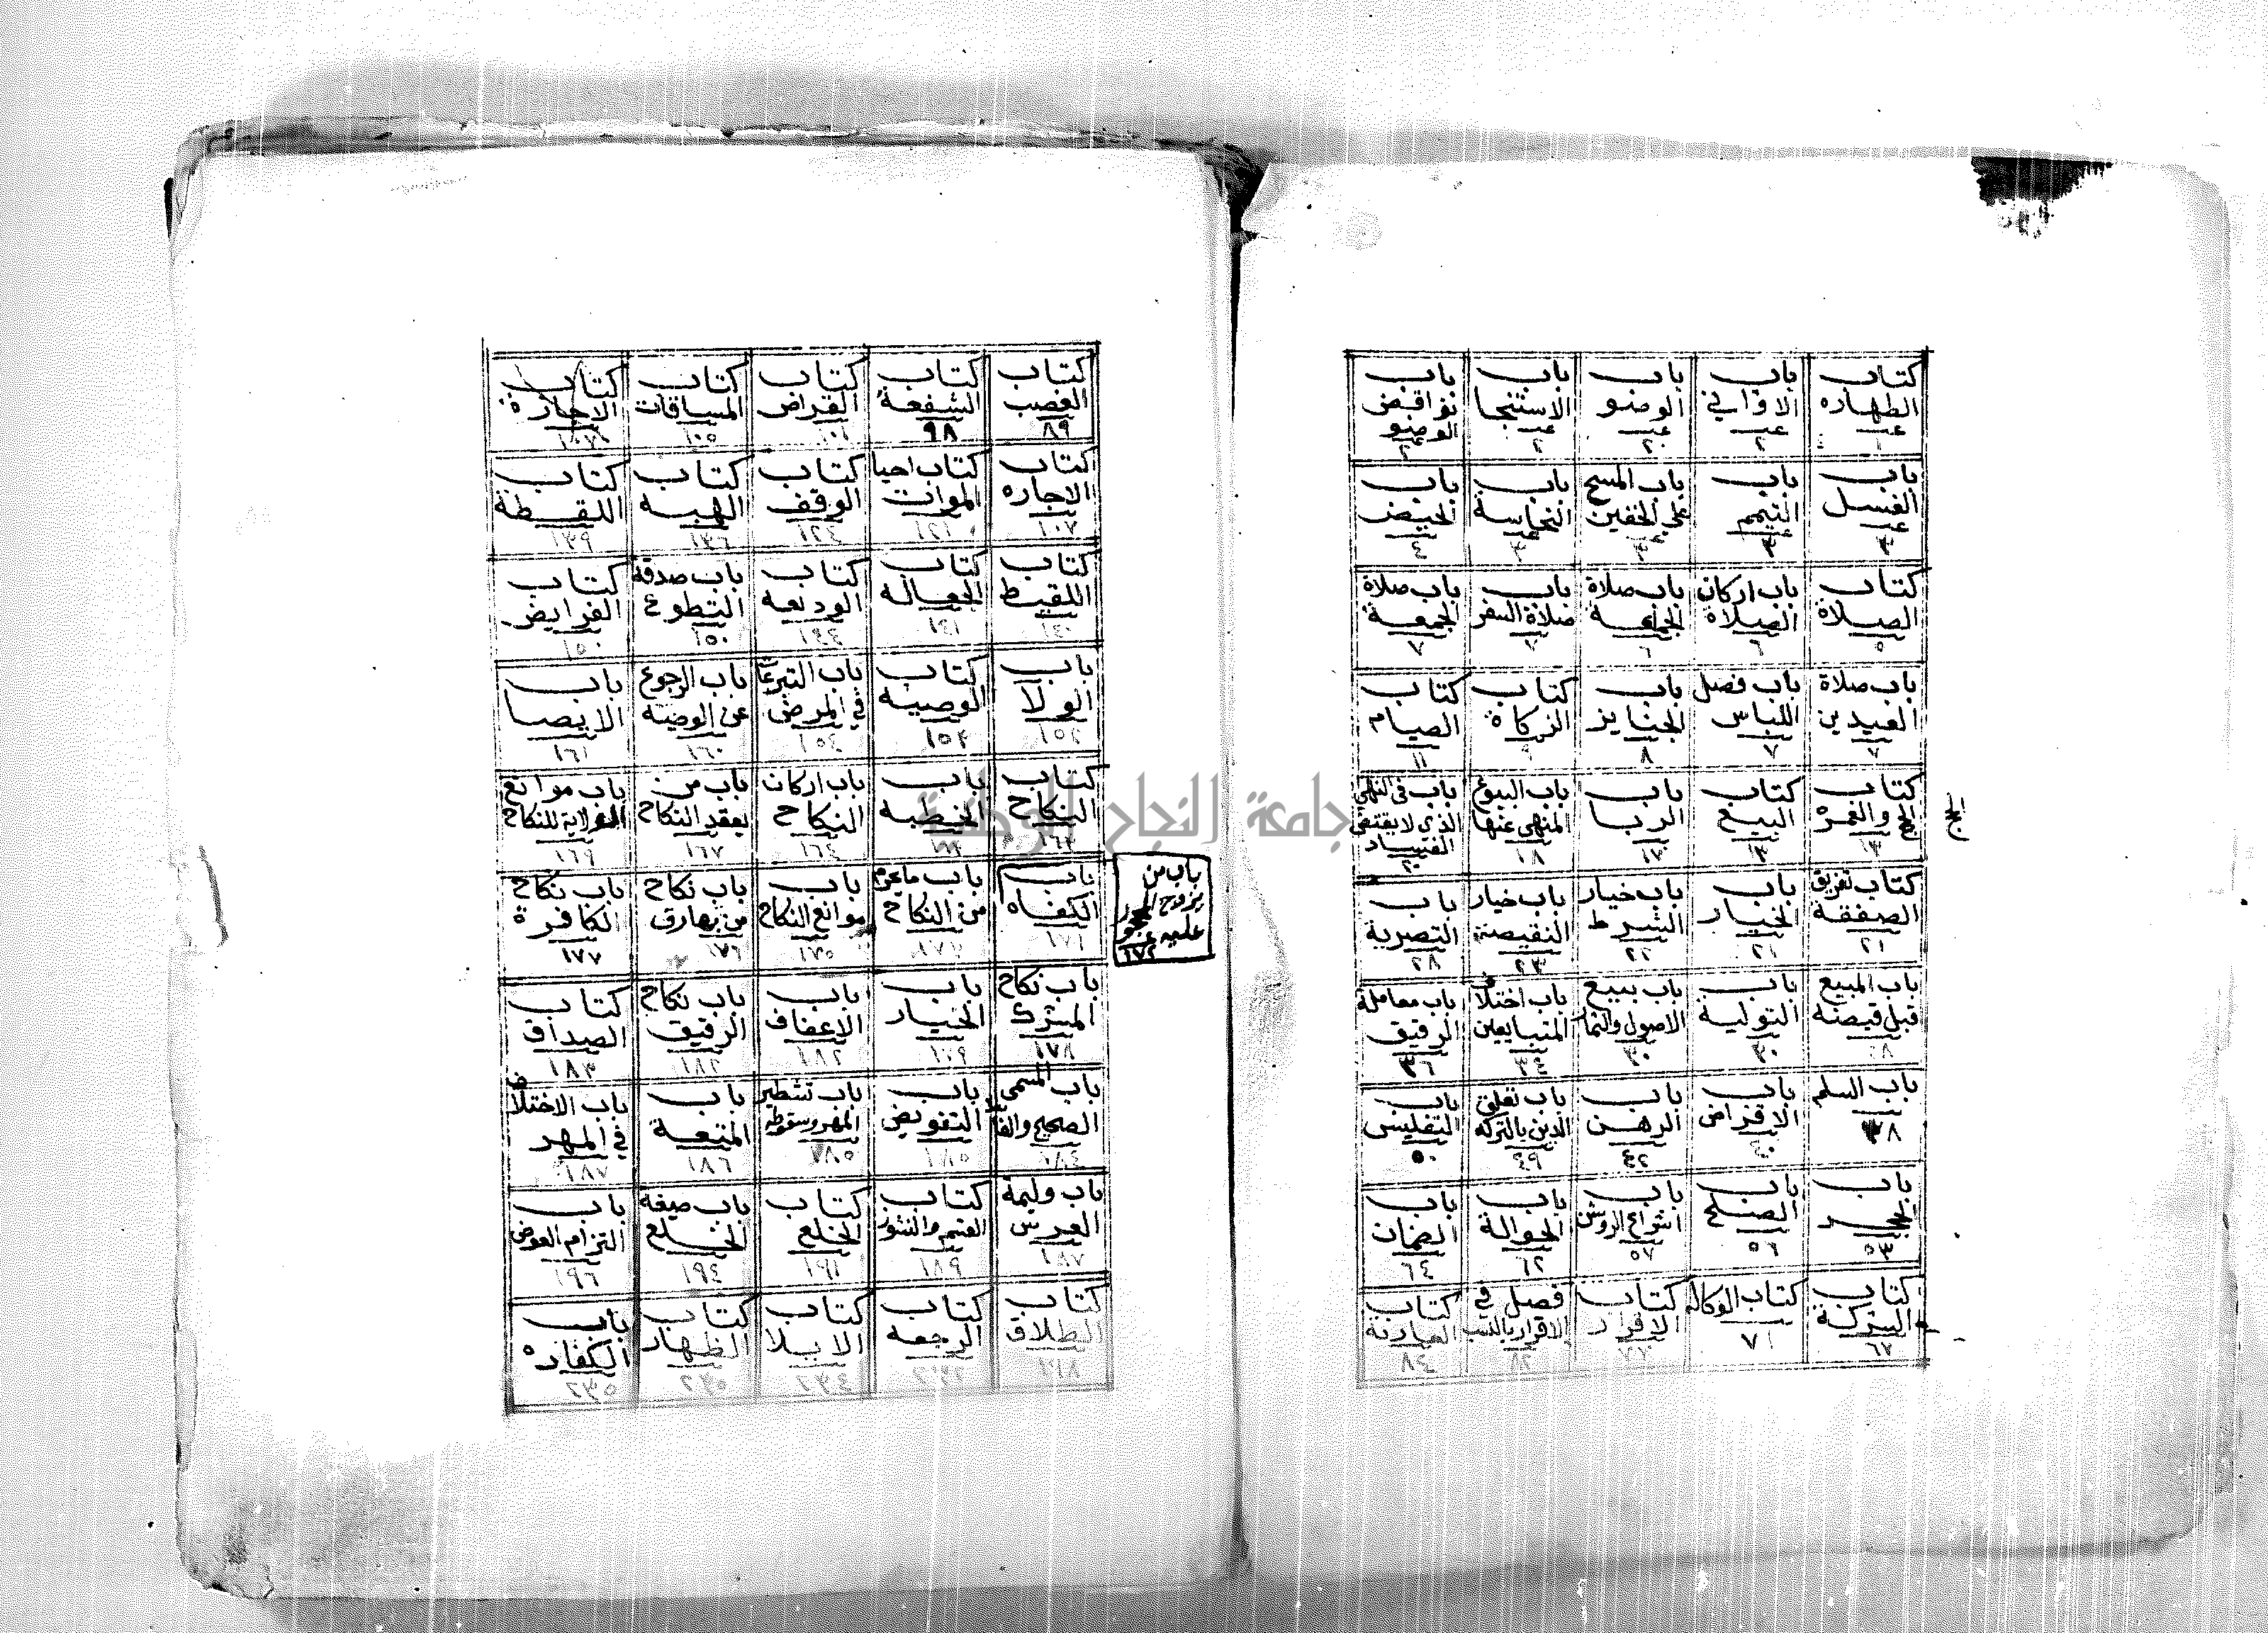 كتاب الطهاره ١
باب الاواني ٢
باب الوضو ٢
باب الاستنجا ٢
باب نواقض الوضو ٢
باب الغسل ٣
باب التيمم ٣
باب المسح على الخفين ٣
باب النجاسة ٣
باب الحيض ٤
كتاب الصلاة ٥
باب اركان الصلاة ٦
باب صلاة الجماعه ٦
باب صلاة السفر ٧
باب صلاة الجمعه ٧
باب صلاة العيدين ٧
باب فصل اللباس ٧
باب الجنايز ٨
كتاب الزكاة ٩
كتاب الصيام ١١
كتاب الحج والعمرة ١٣
الحج
كتاب البيع ١٣
باب الربا ١٧
باب البيوع المنهي عنها ١٨
باب في النهي الذي لا يقتضي الفساد ٢٠
كتاب تفريق الصفقة ٢١
باب الخيار ٢١
باب خيار الشرط ٢٢
باب خيار النقيصة ٢٣
باب التصرية ٢٨
باب المبيع قبل قبضه ٢٨
باب التولية ٣٠
باب بيع الاصول والثمار ٣٠
باب اختلاف المتبايعين ٣٤
باب معاملة الرقيق ٣٦
باب السلم ٣٨
باب الاقراض ٤٠
باب الرهن ٤٢
باب تعلق الدين بالتركه ٤٩
باب التفليس ٥٠
باب الحجر ٥٣
باب الصلح ٥٦
باب اشراع الروشن ٥٧
باب الحوالة ٦٢
باب الضمان ٦٤
كتاب الشركة ٦٧
كتاب الوكاله ٧١
كتاب الاقرار ٧٧
فصل في الاقرار بالنسب ٨٢
كتاب العارية ٨٤
كتاب الغصب ٨٩
كتاب الشفعة ٩٨
كتاب القراض ١٠١
كتاب المساقات ١٠٥
كتاب الاجارة ١٠٧
كتاب الاجاره ١٠٧
كتاب احيا الموات ١٢١
كتاب الوقف ١٢٤
كتاب الهبه ١٣٦
كتاب اللقطة ١٣٩
كتاب اللقيط ١٤٠
كتاب الجعاله ١٤١
كتاب الوديعه ١٤٤
باب صدقة التطوع ١٥٠
كتاب الفرايض ١٥٠
باب الولا ١٥٢
كتاب الوصيه ١٥٢
باب التبرعات في المرض ١٥٤
باب الرجوع عن الوصية ١٦٠
باب الايصا ١٦١
كتاب النكاح ١٦٢
باب الخطبه
باب اركان النكاح ١٦٤
باب من يعقد النكاح ١٦٧
باب موانع الولاية للنكاح ١٦٩
باب الكفاه ١٧١
باب من يزوج المحجور عليه ١٧٢
باب ما يحرم من النكاح
باب موانع النكاح ١٧٥
باب نكاح من بها رق ١٧٦
باب نكاح الكافرة ١٧٧
باب نكاح المشرك ١٧٨
باب الخيار
باب الاعفاف ١٨٢
باب نكاح الرقيق ١٨٢
كتاب الصداق ١٨٣
باب المسمى الصحيح والفاسد ١٨٤
باب التفويض ١٨٥
باب تشطير المهر وسقوطه ١٨٥
باب المتعة ١٨٦
باب الاختلاف في المهر ١٨٧
باب وليمة العرس ١٨٧
كتاب القسم والنشوز ١٨٩
كتاب الخلع ١٩١
باب صيغة الخلع ١٩٤
باب التزام العوض ١٩٦
كتاب الطلاق ١٩٨
كتاب الرجعه
كتاب الايلا ٢٣٤
كتاب الظهار ٢٣٥
باب الكفاره ٢٣٥
جامعة النجاح الوطنية